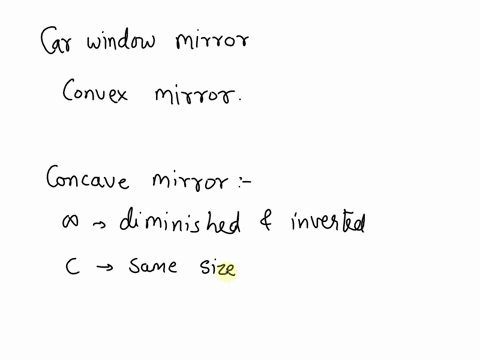 Car window mirror
Convex mirror.
Concave mirror :-
∞ → diminished & inverted
C → same size